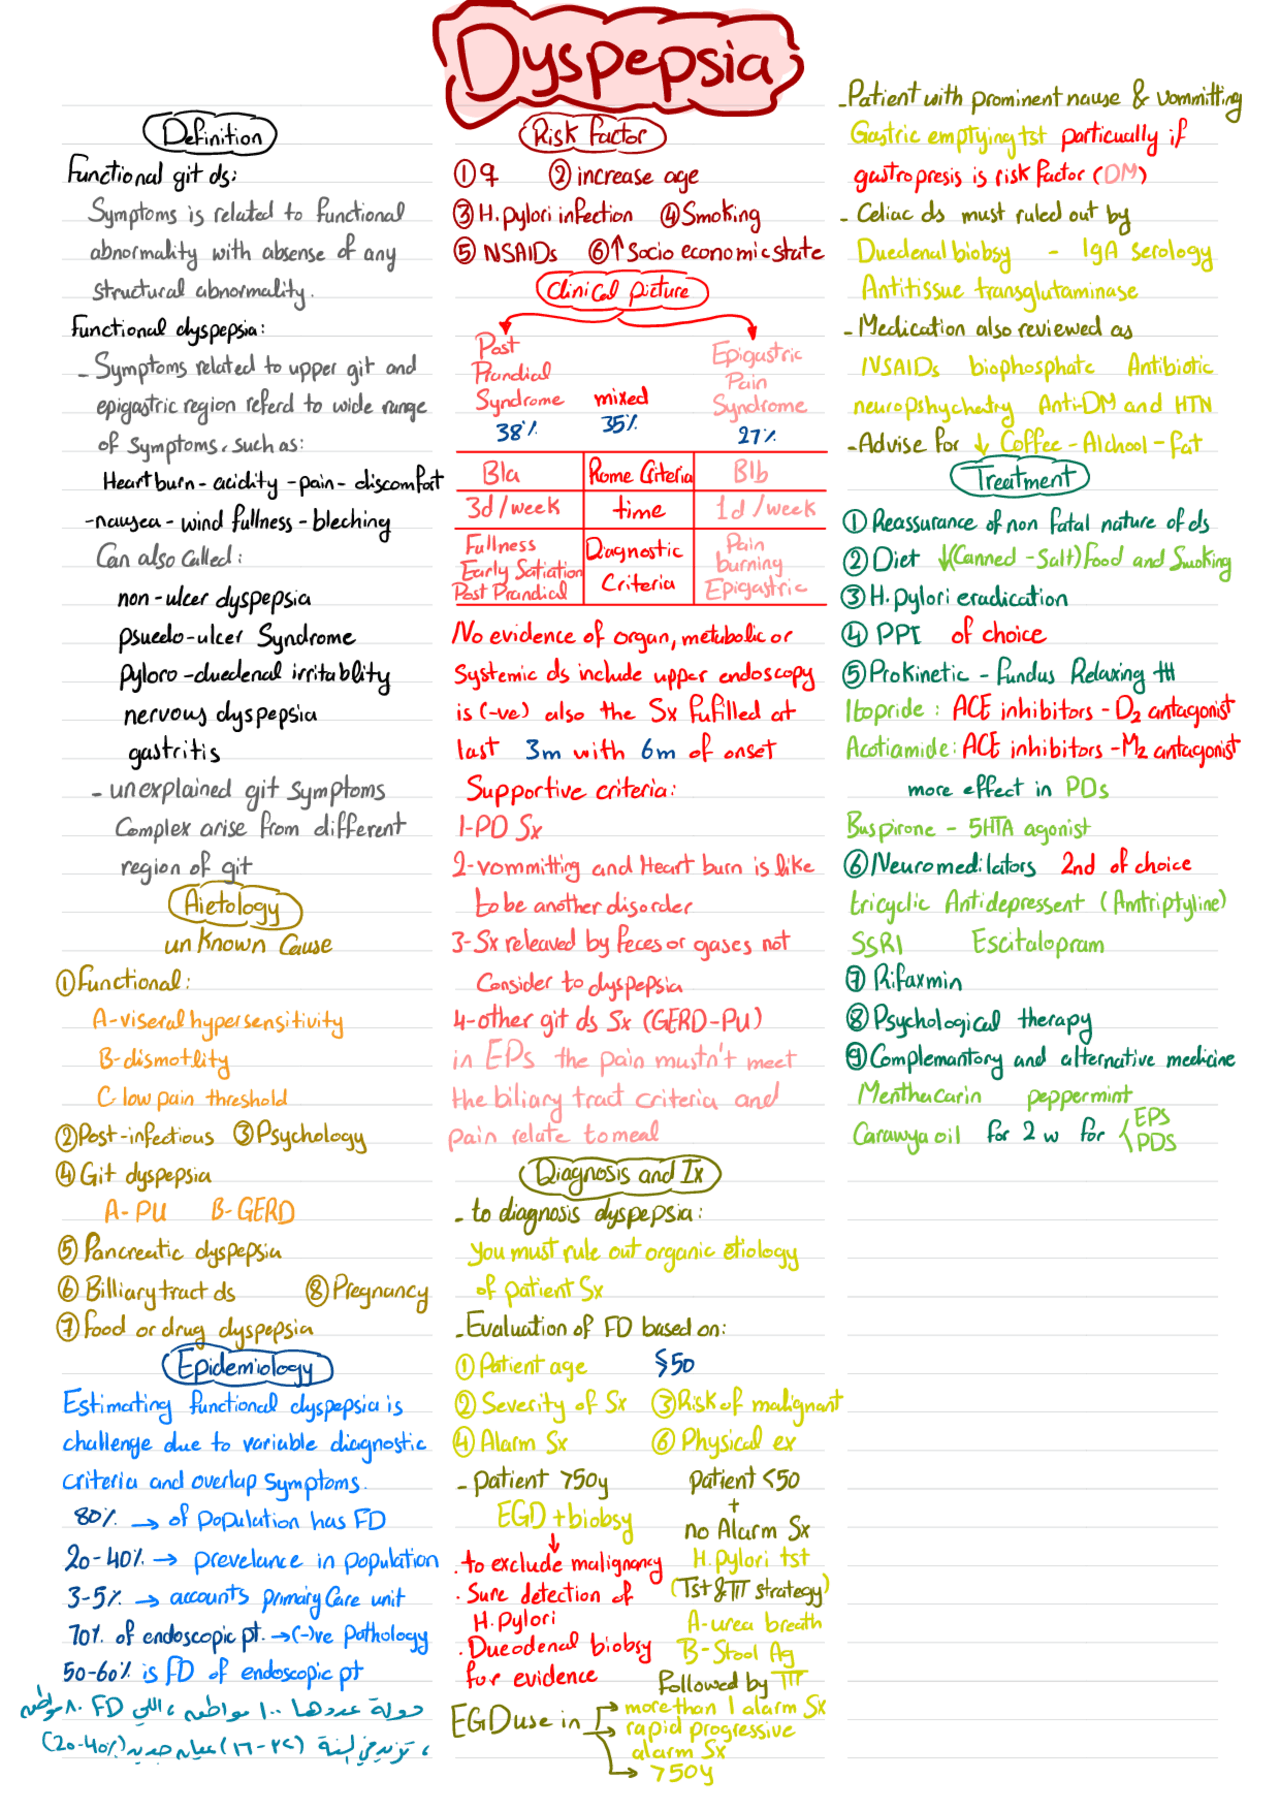 Dyspepsia
Definition
Functional git ds:
Symptoms is related to functional
abnormality with absense of any
structural abnormality.
Functional dyspepsia:
- Symptoms related to upper git and
epigastric region referd to wide range
of symptoms. such as:
Heart burn - acidity - pain - discomfort
-nausea - wind fullness - bleching
Can also called:
non-ulcer dyspepsia
psuedo-ulcer Syndrome
Pyloro-duedenal irritablity
nervous dyspepsia
gastritis
- unexplained git symptoms
Complex arise from different
region of git
Aietology
unknown Cause
① Functional:
A-viseral hypersensitivity
B-dismotlity
C-low pain threshold
② Post-infectious ③ Psychology
④ Git dyspepsia
A- PU B- GERD
⑤ Pancreatic dyspepsia
⑥ Billiary tract ds ⑧ Pregnancy
⑦ food or drug dyspepsia
Epidemiology
Estimating functional dyspepsia is
challenge due to variable diagnostic
criteria and overlap symptoms.
80% → of population has FD
20-40% → prevelance in population
3-5% → accounts primary Care unit
70% of endoscopic pt. → (-)ve pathology
50-60% is FD of endoscopic pt
دولة عددها ١٠٠ مواطنه، اللي FD ٨٠ مواطنه
، تزيد في السنة (20-40%) جديد
Risk factor
① ♀ ② increase age
③ H.pylori infection ④ Smoking
⑤ NSAIDs ⑥ ↑ Socio economic state
Clinical picture
Post Prandial Syndrome 38%
mixed 35%
Epigastric Pain Syndrome 27%
B1a Rome Criteria B1b
3d/week time 1d/week
Fullness Early Satiation Post Prandial
Diagnostic Criteria
Pain burning Epigastric
No evidence of organ, metabolic or
systemic ds include upper endoscopy
is (-ve) also the Sx fufilled at
last 3m with 6m of onset
Supportive criteria:
1-PD Sx
2-vommitting and Heart burn is like
to be another disorder
3-Sx releaved by feces or gases not
Consider to dyspepsia
4-other git ds Sx (GERD-PU)
in EPs the pain mustn't meet
the biliary tract criteria and
pain relate to meal
Diagnosis and Ix
- to diagnosis dyspepsia:
you must rule out organic etiology
of patient Sx
- Evaluation of FD based on:
① Patient age 50
② Severity of Sx ③ Risk of malignant
④ Alarm Sx ⑥ Physical ex
- patient >50y
EGD + biobsy
↓
. to exclude malignancy
. Sure detection of
H.Pylori
. Dueodenal biobsy
for evidence
patient <50
+
no Alarm Sx
H.pylori tst
(Tst & TTT strategy)
A-urea breath
B-Stool Ag
followed by TTT
EGD use in
→ more than 1 alarm Sx
→ rapid progressive
alarm Sx
→ >50y
- Patient with prominent nause & vommitting
Gastric emptying tst particually if
gastropresis is risk factor (DM)
- Celiac ds must ruled out by
Duedenal biobsy - IgA serology
Antitissue transglutaminase
- Medication also reviewed as
NSAIDs biophosphate Antibiotic
neuropshychatry Anti-DM and HTN
- Advise for ↓ Coffee - Alchool - fat
Treatment
① Reassurance of non fatal nature of ds
② Diet ↓(Canned - Salt) food and Smoking
③ H.pylori eradication
④ PPI of choice
⑤ Prokinetic - fundus Relaxing ttt
Itopride: ACE inhibitors - D2 antagonist
Acotiamide: ACE inhibitors - M2 antagonist
more effect in PDs
Buspirone - 5HTA agonist
⑥ Neuromedilators 2nd of choice
tricyclic Antidepressent (Amtriptyline)
SSRI Escitalopram
⑦ Rifaxmin
⑧ Psychological therapy
⑨ Complemantory and alternative medicine
Menthacarin peppermint
Carawya oil for 2 w for EPS PDS